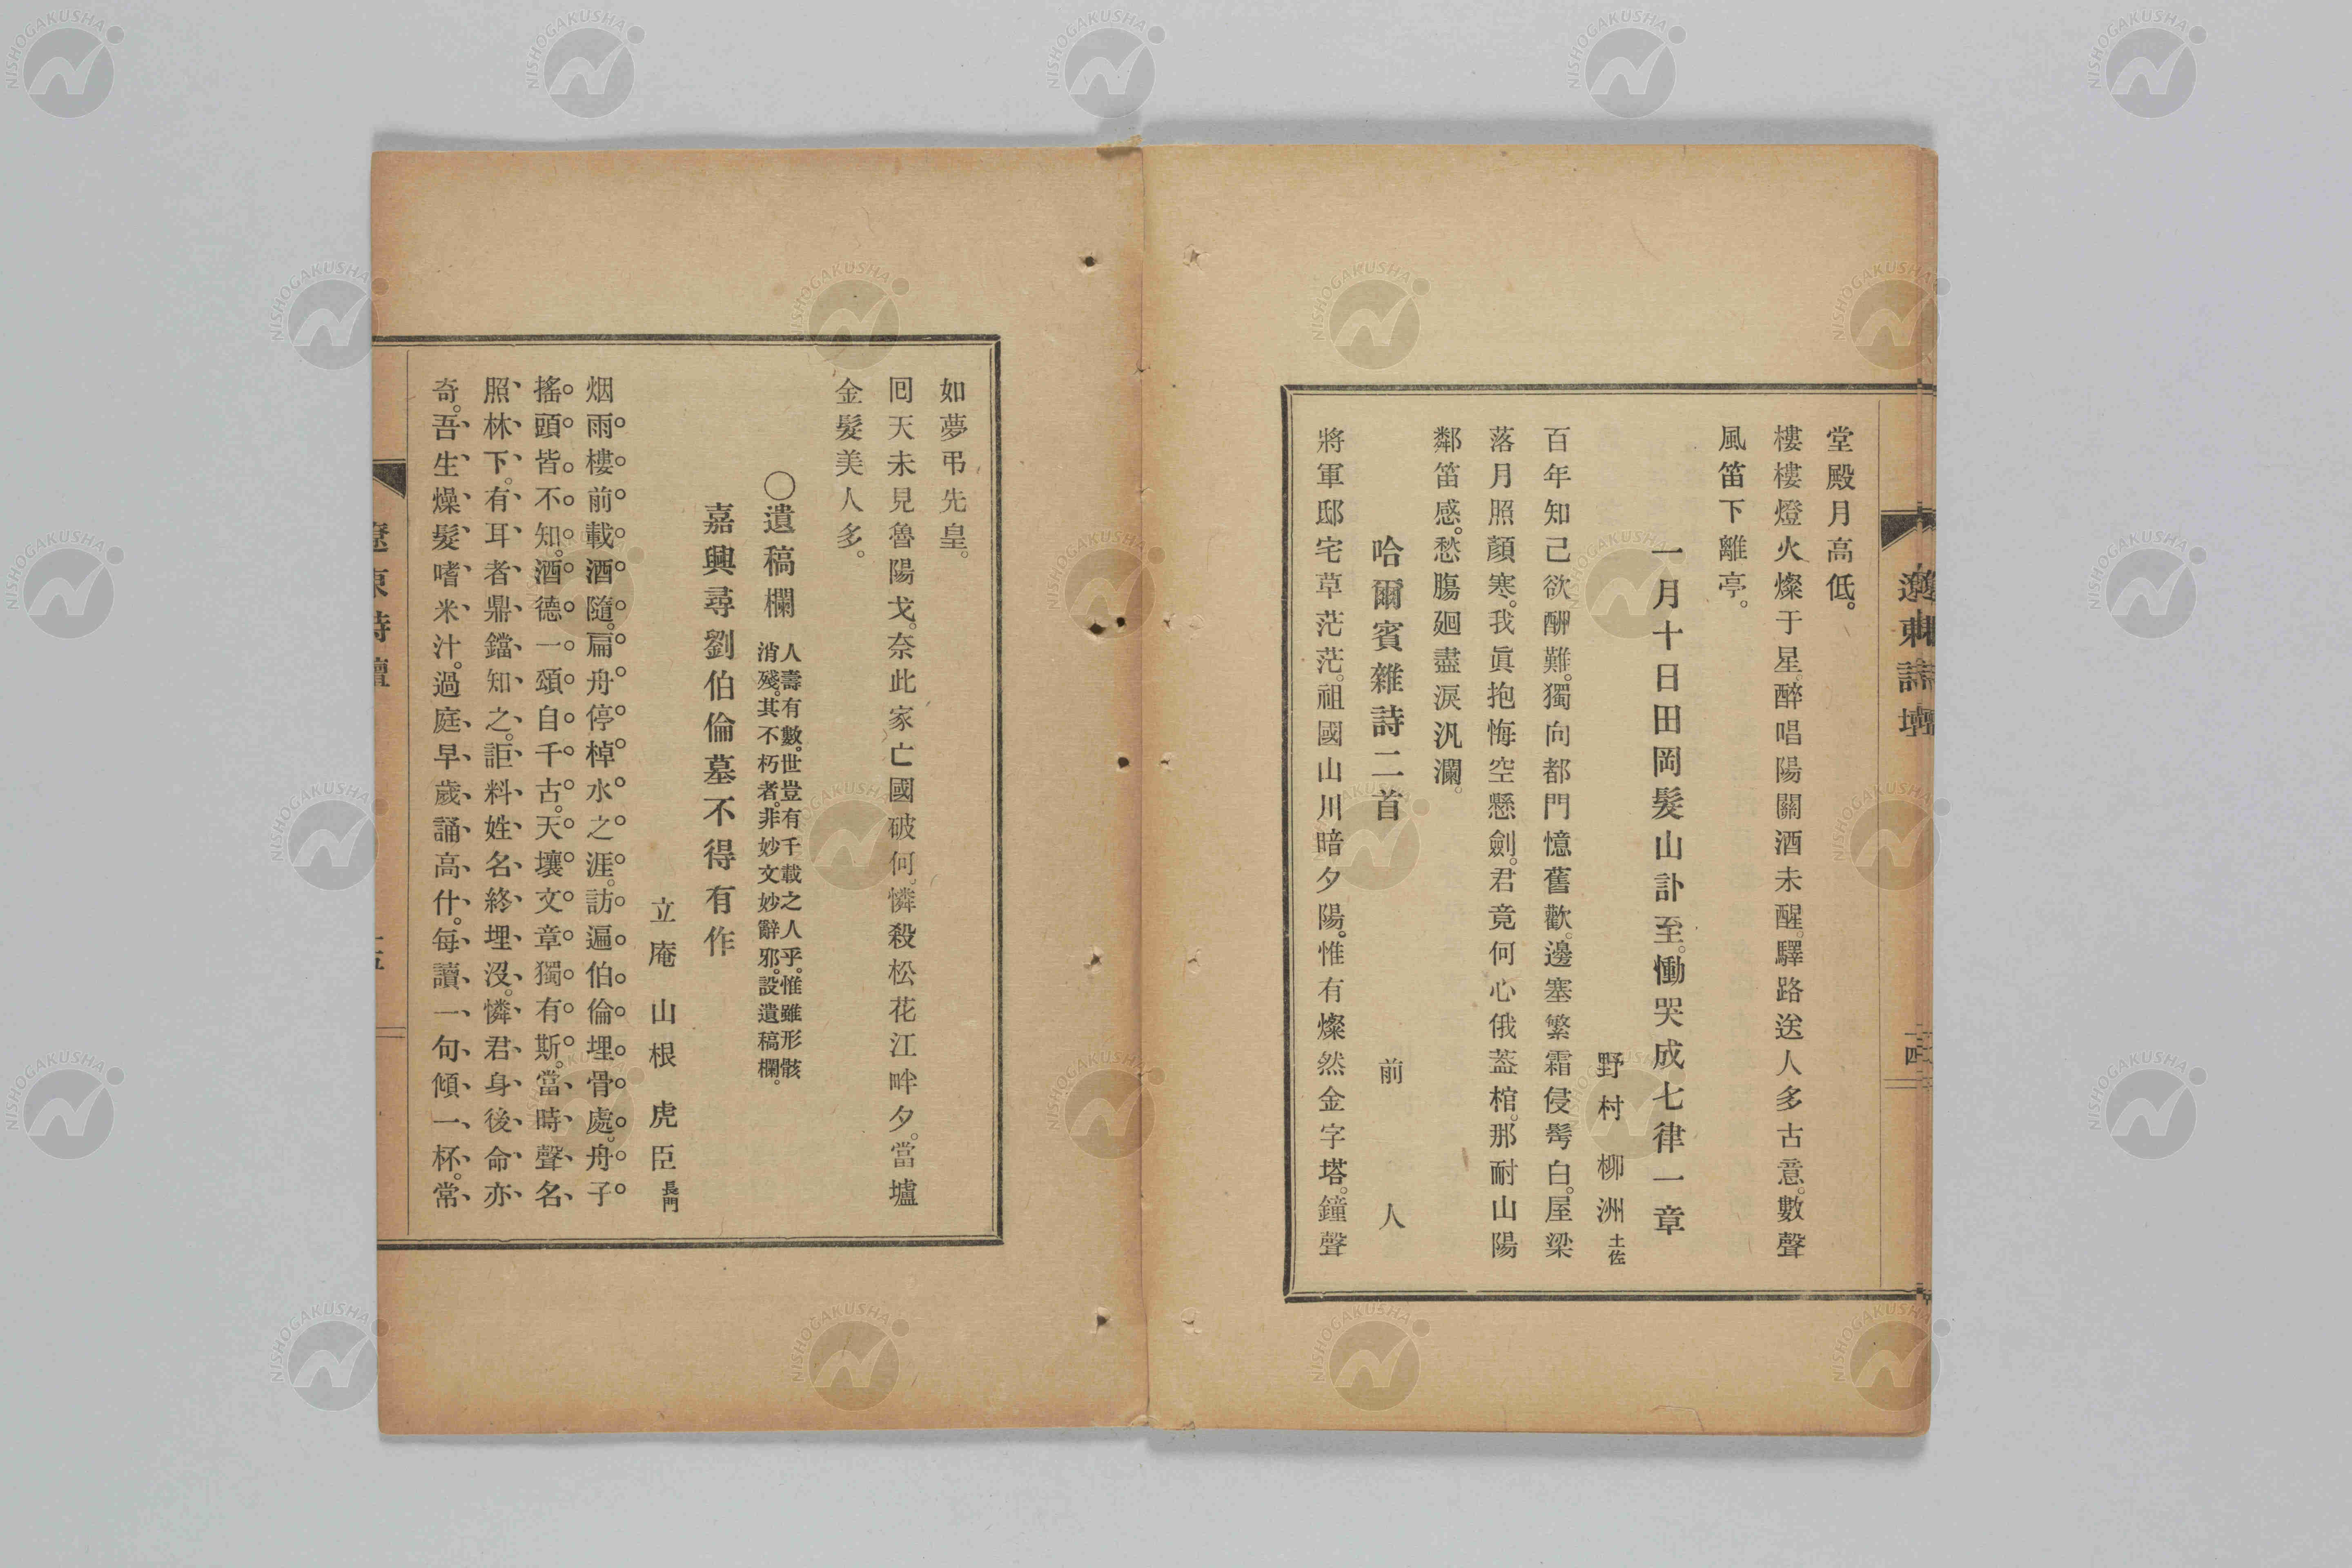 遼東詩壇
一四
堂殿月高低。
樓樓燈火燦于星。醉唱陽關酒未醒。驛路送人多古意。數聲
風笛下離亭。
一月十日田岡髮山訃至。慟哭成七律一章
野村柳洲土佐
百年知己欲酬難。獨向都門憶舊歡。邊塞繁霜侵髩白。屋梁
落月照顏寒。我眞抱悔空懸劍。君竟何心俄蓋棺。那耐山陽
鄰笛感。愁腸廻盡淚汎瀾。
哈爾賓雜詩二首
前人
將軍邸宅草茫茫。祖國山川暗夕陽。惟有燦然金字塔。鐘聲
如夢弔先皇。
囘天未見魯陽戈。奈此家亡國破何。憐殺松花江畔夕。當壚
金髮美人多。
○遺稿欄
人壽有數。世豈有千載之人乎。惟雖形骸
消殘。其不朽者。非妙文妙辭邪。設遺稿欄。
嘉興尋劉伯倫墓不得有作
立庵山根虎臣長門
烟雨樓前載酒隨。扁舟停棹水之涯。訪遍伯倫埋骨處。舟子
搖頭皆不知。酒德一頌自千古。天壤文章獨有斯。當時聲名
照林下。有耳者鼎鐺知之。詎料姓名終埋沒。憐君身後命亦
奇。吾生燥髮嗜米汁。過庭早歲誦高什。每讀一句傾一杯。常
遼東詩壇
一五
NISHOGAKUSHA